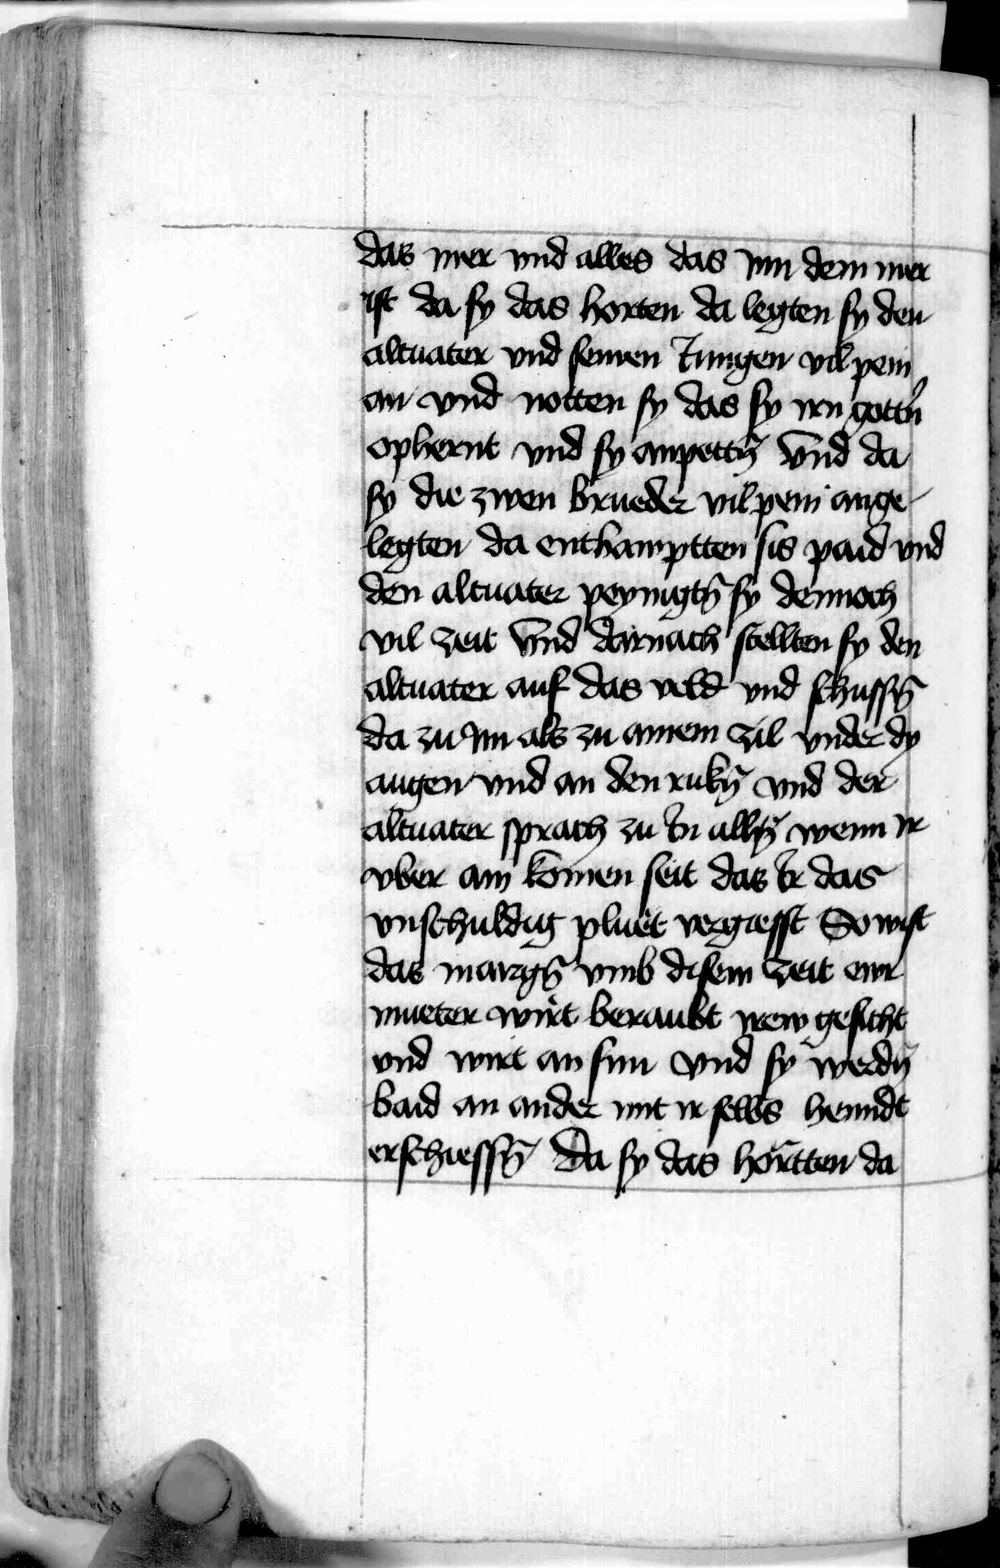 das mer vnd alles das ynn dem mer
ist da sy das horten da legten sy den
altuater vnd seinen Jungen vil pein
an vnd notten sy das sy irn gottñ
ophernt vnd sy anpettñ Vnd da
sy die zwen brueder vil pein ange
legten da enthawptten sis paid vnd
den altuater peynigtñ sy dennoch
vil zeit Vnd darnach stellten sy den
altuater auf das veld vnd schussñ
da zu Im als zu ainem zil vnder dy
augen vnd an den rukñ vnd der
altuater sprach zu in allñ wenn ir
vber ain komen seit das ir das
vnschuldig pluet vergiesst So wist
das margñ vmb disew zeit ewr
mueter wirt beraubt irew gesicht
vnd wirt an sun Vnd sy werdñ
baid an ander mit ir selbs henndt
erschiessñ Da sy das hortten da